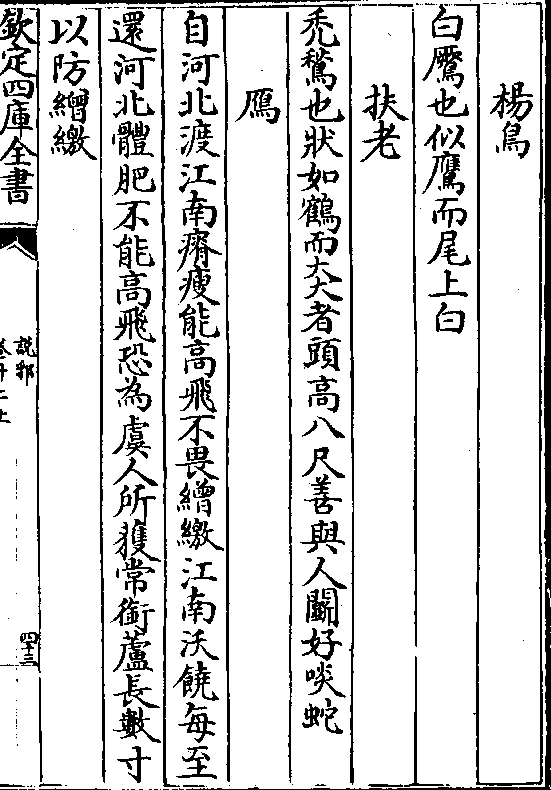 楊鳥
白鷢也似鷹而尾上白
扶老
禿鶖也狀如鶴而大大者頭高八尺善與人鬭好啖蛇
鴈
自河北渡江南瘠瘦能高飛不畏繒繳江南沃饒每至
還河北體肥不能高飛恐為虞人所獲常銜蘆長數寸
以防繒繳
欽定四庫全書
說郛
四十三